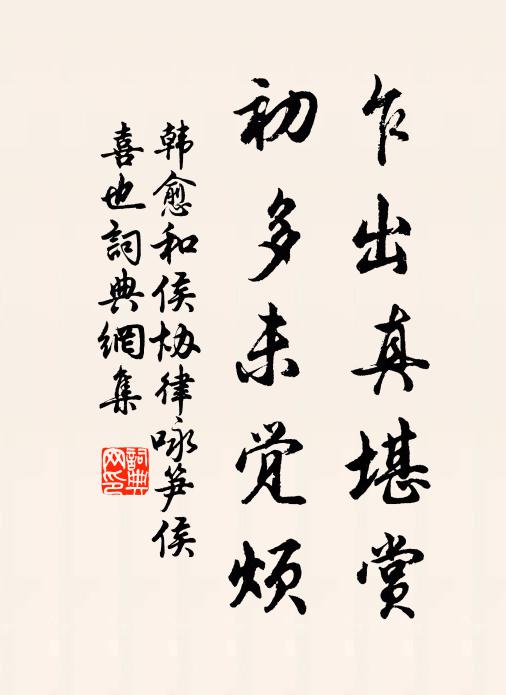 乍出真堪赏
初多未觉烦
韩愈和侯协律咏笋侯
喜也詞典網集
詞典网印